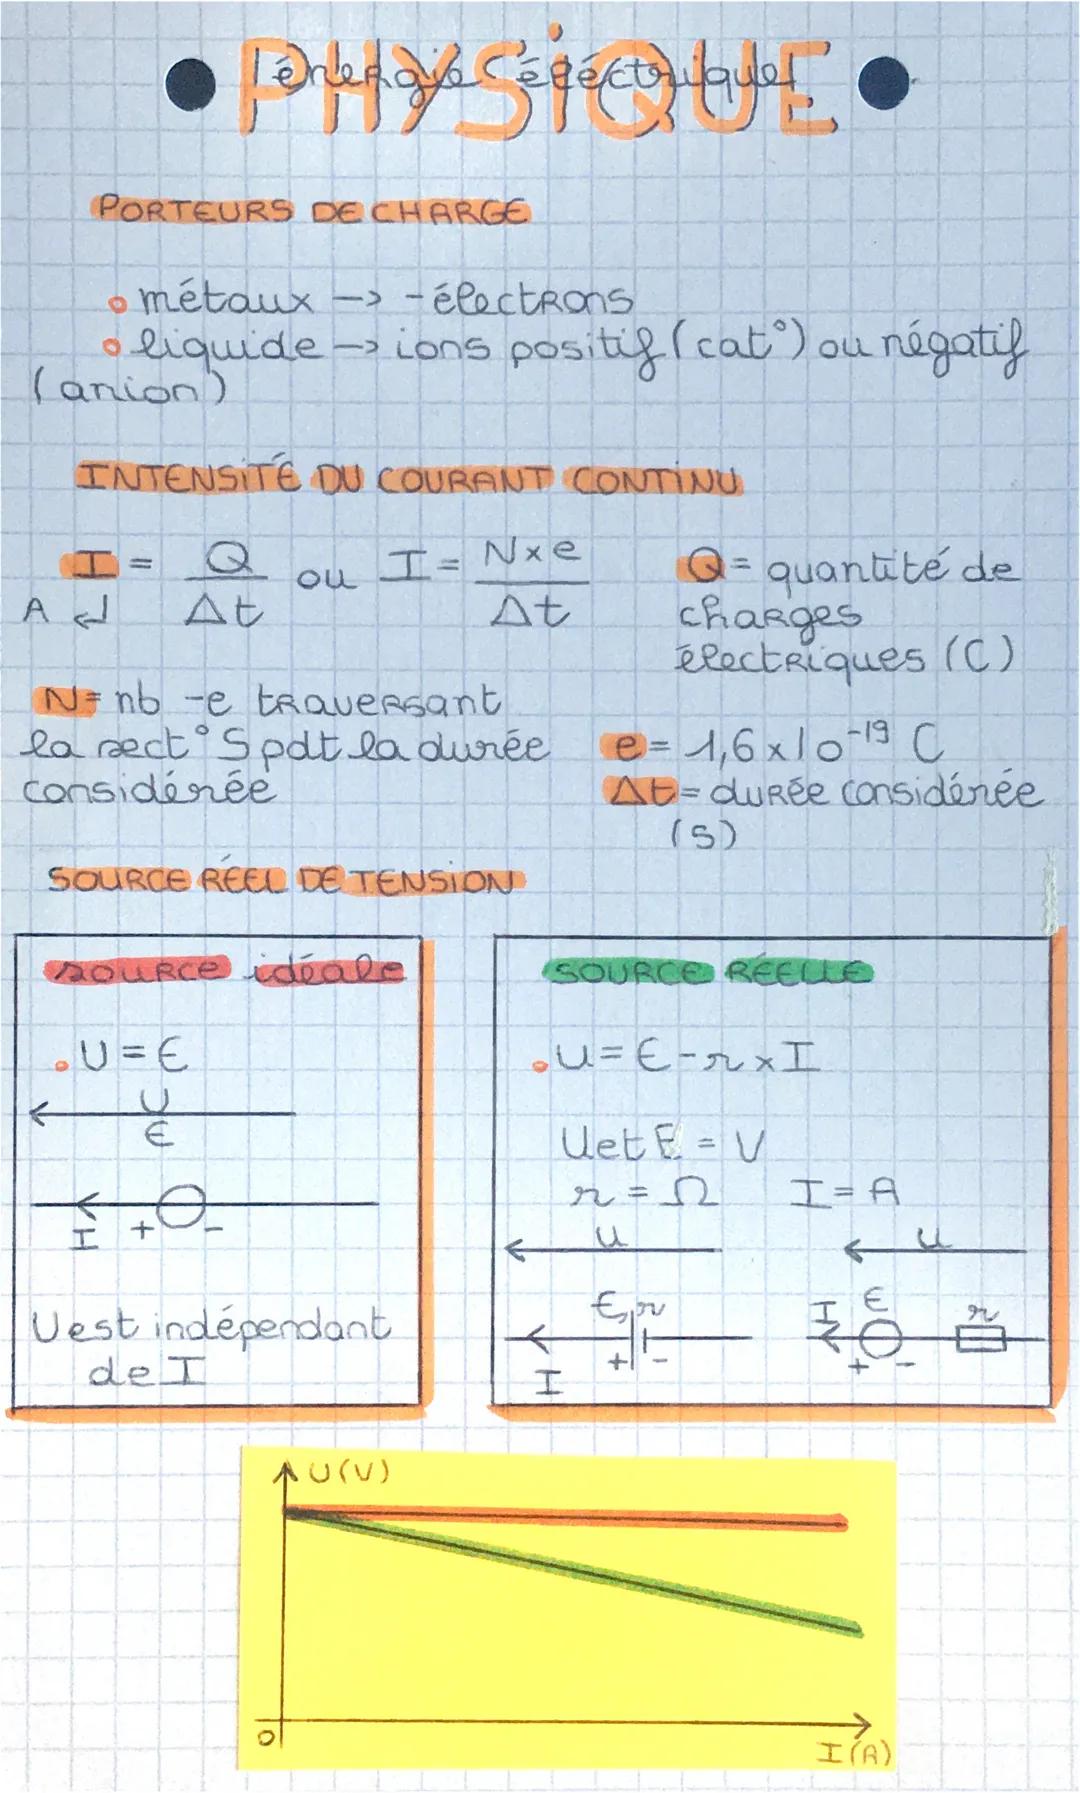 PHYSIQUE
l'énergie électrique
PORTEURS DE CHARGE
métaux -> -électrons
liquide -> ions positif (cat°) ou négatif
(anion)
INTENSITÉ DU COURANT CONTINU
I = Q/Δt ou I = N×e/Δt
A ↵
Q = quantité de
charges
électriques (C)
N = nb -e traversant
la sect° S pdt la durée
considérée
e = 1,6 x 10⁻¹⁹ C
Δt = durée considérée
(s)
SOURCE RÉEL DE TENSION
source idéale
U = E
U
E
I + -
U est indépendant
de I
SOURCE RÉELLE
U = E - r x I
U et E = V
r = Ω I = A
U U
E, r
+ -
I
I E r
+ -
U(V)
0
I(A)